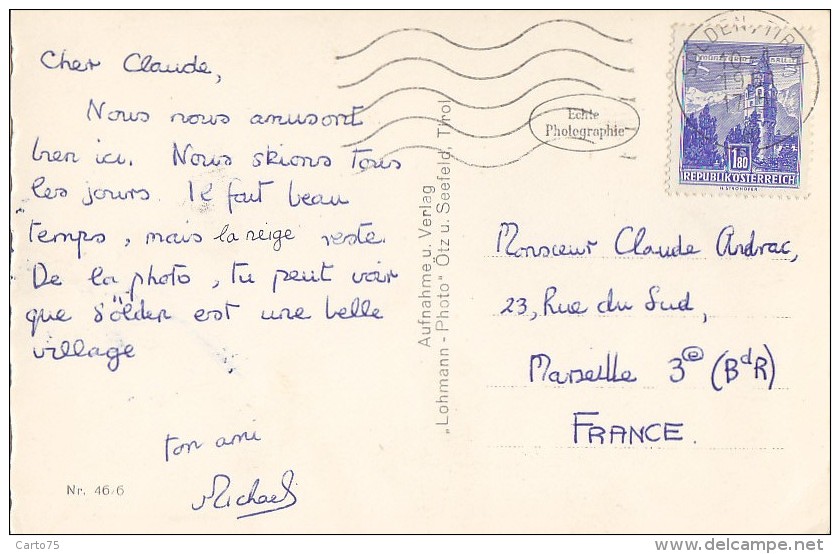 Cher Claude,
Nous nous amusont
bien ici. Nous skions tous
les jours. Il fait beau
temps, mais la neige reste.
De la photo, tu peut voir
que Sölden est une belle
village
ton ami
Michael
Nr. 46/6
Aufnahme u. Verlag
„Lohmann - Photo" Ötz u. Seefeld, Tirol
Echte
Photographie
SÖLDEN, TIROL
1.80
REPUBLIK ÖSTERREICH
Monsieur Claude Andrac,
23, Rue du Sud,
Marseille 3e (BdR)
FRANCE.
Carto75
delcampe.net